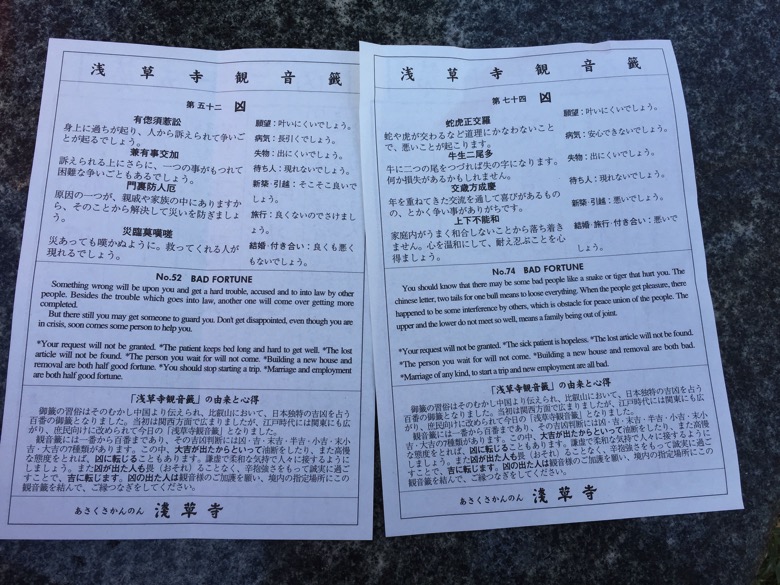 浅草寺観音籤
第五十二 凶
有偬須惹訟
身上に過ちが起り、人から訴えられて争いご
とが起るでしょう。
兼有事交加
訴えられる上にさらに、一つの事がもつれて
困難な争いごともあるでしょう。
門裏防人厄
原因の一つが、親戚や家族の中にありますか
ら、そのことから解決して災いを防ぎましょ
う。
災臨莫嘆嗟
災あっても嘆かぬように。救ってくれる人が
現れるでしょう。
願望：叶いにくいでしょう。
病気：長引くでしょう。
失物：出にくいでしょう。
待ち人：現れないでしょう。
新築・引越：そこそこ良いで
しょう。
旅行：良くないのでさけまし
ょう。
結婚・付き合い：良くも悪く
もないでしょう。
No.52 BAD FORTUNE
Something wrong will be upon you and get a hard trouble, accused and to into law by other
people. Besides the trouble which goes into law, another one will come over getting more
completed.
But there still you may get someone to guard you. Don't get disappointed, even though you are
in crisis, soon comes some person to help you.
*Your request will not be granted. *The patient keeps bed long and hard to get well. *The lost
article will not be found. *The person you wait for will not come. *Building a new house and
removal are both half good fortune. *You should stop starting a trip. *Marriage and employment
are both half good fortune.
「浅草寺観音籤」の由来と心得
御籤の習俗はそのむかし中国より伝えられ、比叡山において、日本独特の吉凶を占う
百番の御籤となりました。当初は関西方面で広まりましたが、江戸時代には関東にも広
がり、庶民向けに改められて今日の「浅草寺観音籤」となりました。
観音籤には一番から百番まであり、その吉凶判断には凶・吉・末吉・半吉・小吉・末小
吉・大吉の7種類があります。この中、大吉が出たからといって油断をしたり、また高慢
な態度をとれば、凶に転じることもあります。謙虚で柔和な気持で人々に接するように
しましょう。また凶が出た人も畏（おそれ）ることなく、辛抱強さをもって誠実に過ご
すことで、吉に転じます。凶の出た人は観音様のご加護を願い、境内の指定場所にこの
観音籤を結んで、ご縁つなぎをしてください。
あさくさかんのん 淺草寺
浅草寺観音籤
第七十四 凶
蛇虎正交羅
蛇や虎が交わるなど道理にかなわないこと
で、悪いことが起こります。
牛生二尾多
牛に二つの尾をつづれば失の字になります。
何か損失があるかもしれません。
交歳方成慶
年を重ねてきた交流を通して喜びがあるもの
の、とかく争い事がありがちです。
上下不能和
家庭内がうまく和合しないことから落ち着き
ません。心を温和にして、耐え忍ぶことを心
得ましょう。
願望：叶いにくいでしょう。
病気：安心できないでしょう。
失物：出にくいでしょう。
待ち人：現れないでしょう。
新築・引越：悪いでしょう。
結婚・旅行・付き合い：悪いで
しょう。
No.74 BAD FORTUNE
You should know that there may be some bad people like a snake or tiger that hurt you. The
chinese letter, two tails for one bull means to loose everything. When the people get pleasure, there
happened to be some interference by others, which is obstacle for peace union of the people. The
upper and the lower do not meet so well, means a family being out of joint.
*Your request will not be granted. *The sick patient is hopeless. *The lost article will not be found.
*The person you wait for will not come. *Building a new house and removal are both bad.
*Marriage of any kind, to start a trip and new employment are all bad.
「浅草寺観音籤」の由来と心得
御籤の習俗はそのむかし中国より伝えられ、比叡山において、日本独特の吉凶を占う
百番の御籤となりました。当初は関西方面で広まりましたが、江戸時代には関東にも広
がり、庶民向けに改められて今日の「浅草寺観音籤」となりました。
観音籤には一番から百番まであり、その吉凶判断には凶・吉・末吉・半吉・小吉・末小
吉・大吉の7種類があります。この中、大吉が出たからといって油断をしたり、また高慢
な態度をとれば、凶に転じることもあります。謙虚で柔和な気持で人々に接するように
しましょう。また凶が出た人も畏（おそれ）ることなく、辛抱強さをもって誠実に過ご
すことで、吉に転じます。凶の出た人は観音様のご加護を願い、境内の指定場所にこの
観音籤を結んで、ご縁つなぎをしてください。
あさくさかんのん 淺草寺